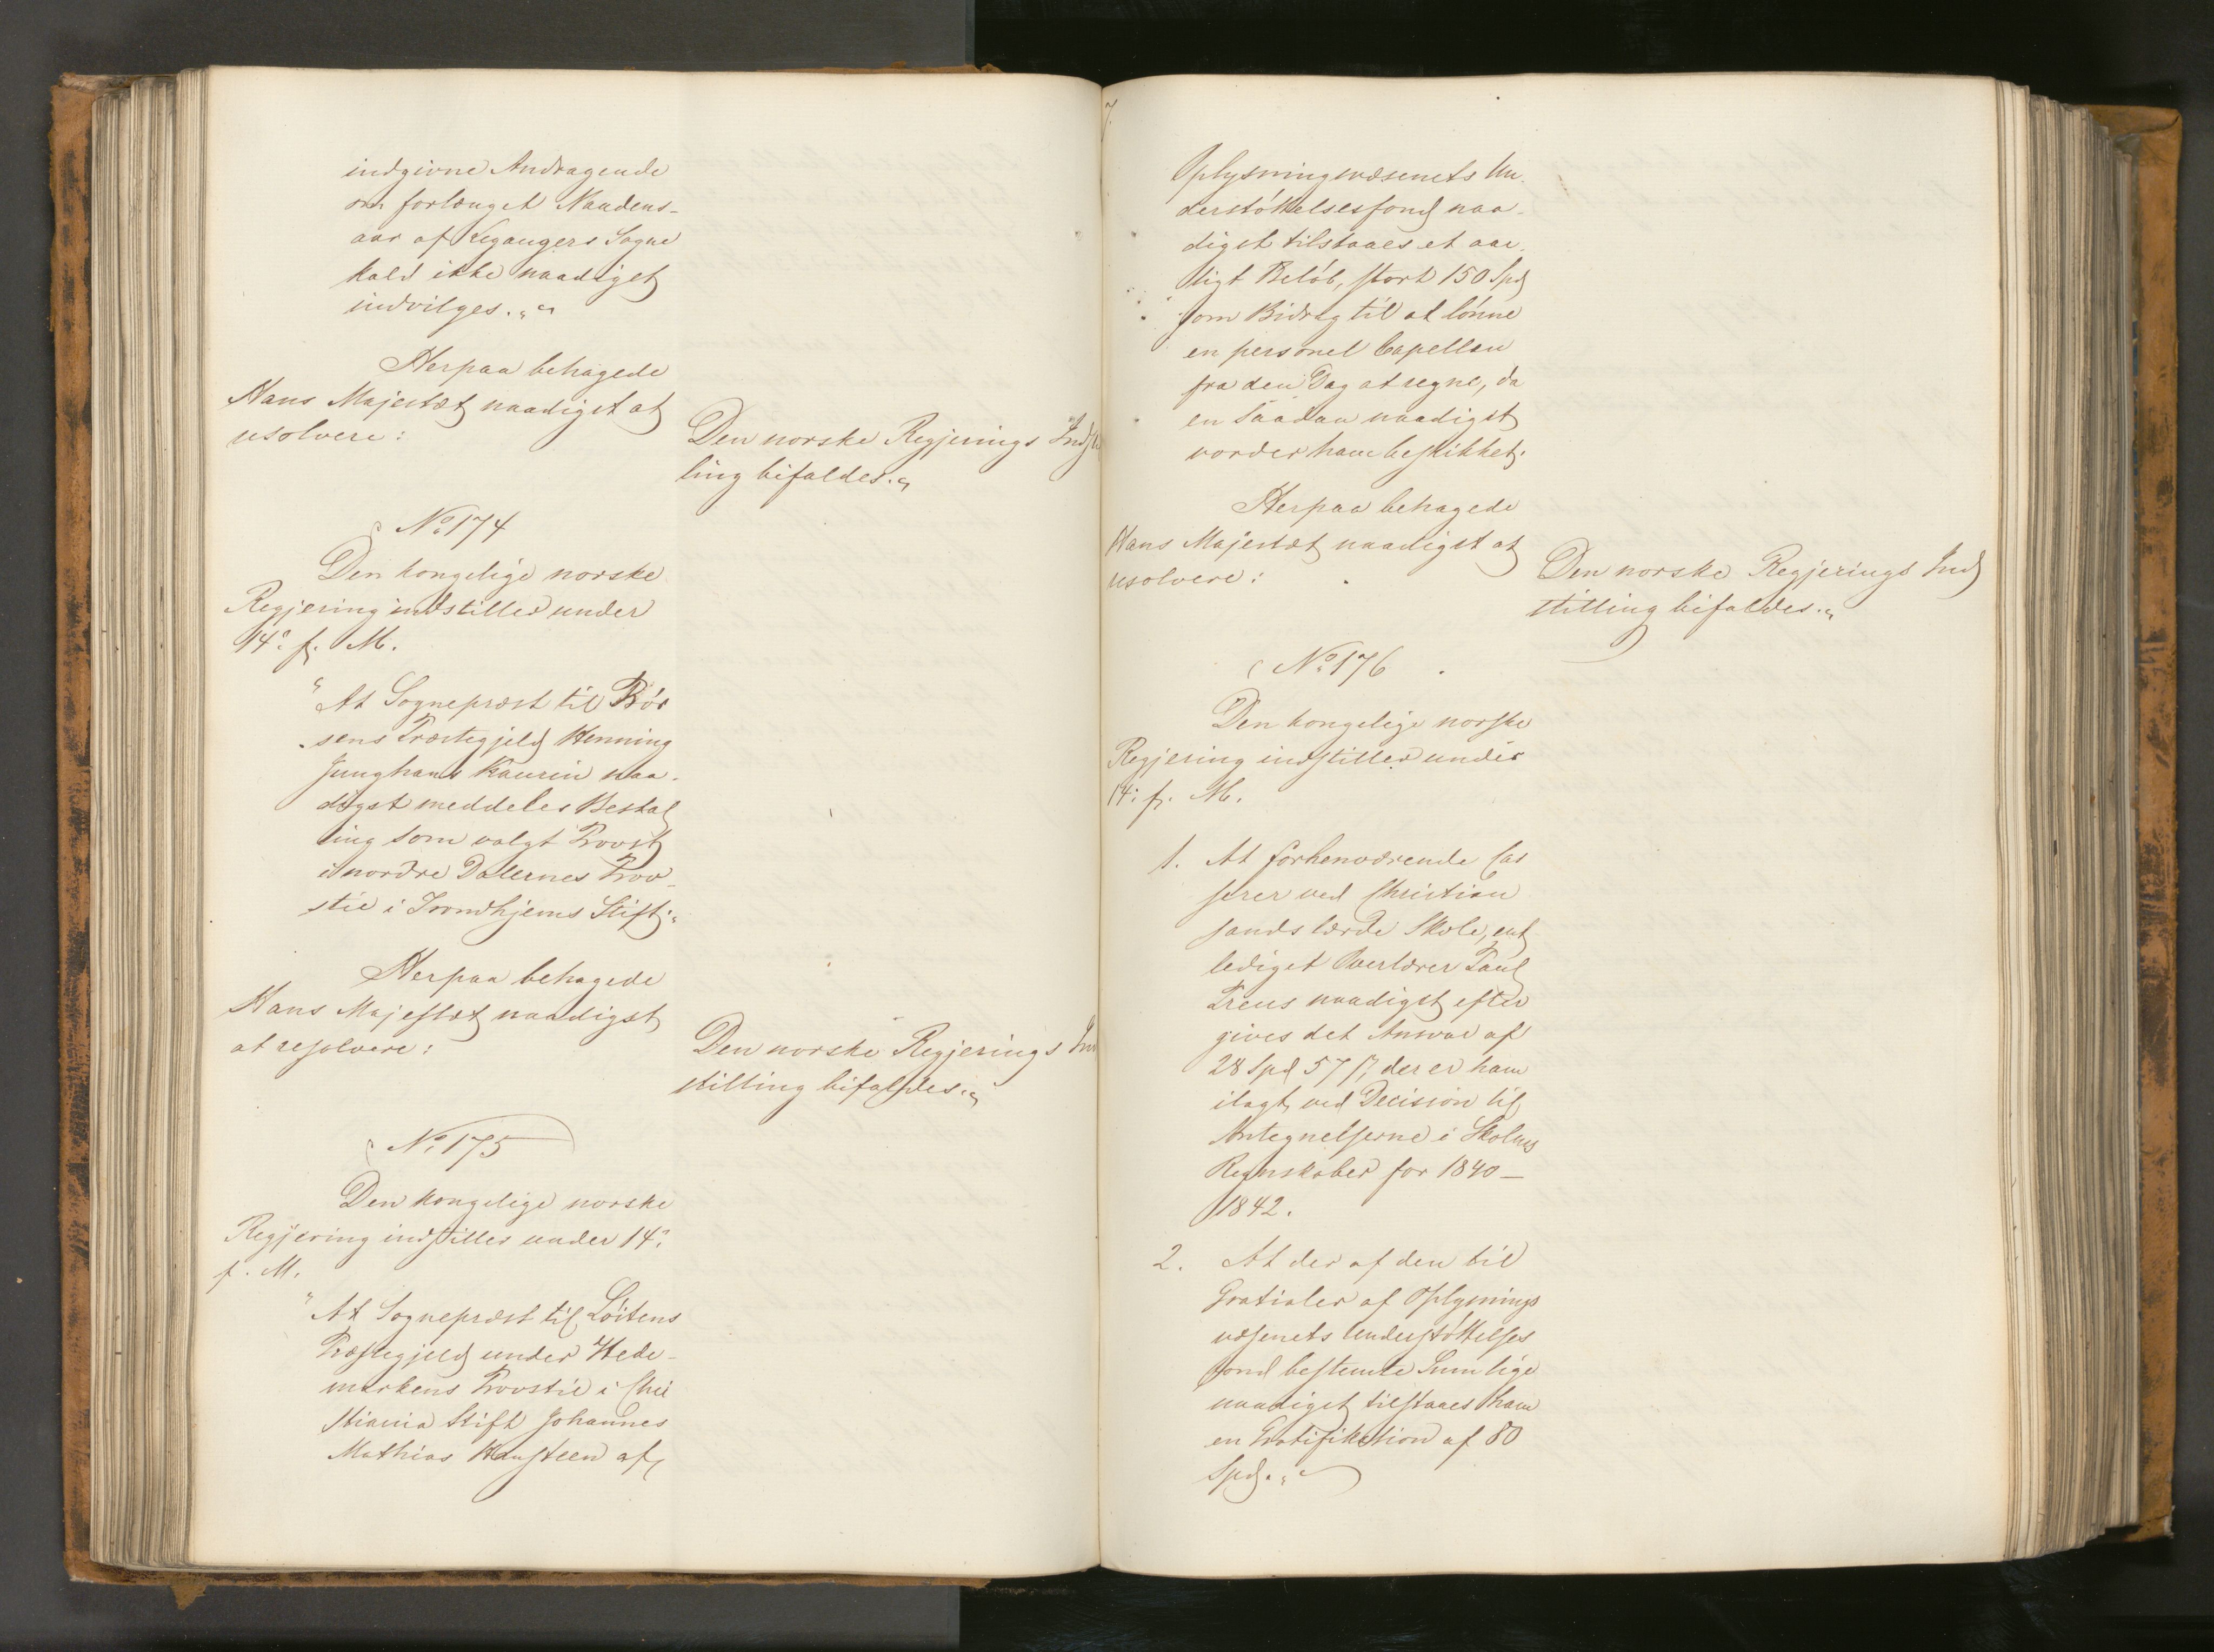 indgivne Andragende
om forlænget Naadens-
aar af Leganger Sogne
kald ikke naadigst
indvilges."
Herpaa behagede
Hans Majestæt naadigst at
resolvere:
Den norske Regjerings Indstil
ling bifaldes."
No 174
Den kongelige norske
Regjering indstiller under
14: f. M.
"At Sognepræst til Bør
sens Præstegjeld Henning
Junghans Kaurin naa-
digst meddeles Bestal
ling som valgt Provst
i nordre Dalernes Prov-
stie i Trondhjems Stift."
Herpaa behagede
Hans Majestæt naadigst
at resolvere:
Den norske Regjerings Ind
stilling bifaldes."
No 175
Den kongelige norske
Regjering indstiller under 14:
f. M.
"At Sognepræst til Löitens
Præstegjeld under Hede-
markens Provstie i Chri
stiania Stift Johannes
Mathias Hansteen af
Oplysningsvæsenets Un-
derstöttelsesfond naa-
digst tilstaaes et aar-
ligt Belöb, stort 150 Spd
som Bidrag til at lönne
en personel Capellan
fra den Dag at regne, da
en Saadan naadigst
vorder ham beskikket.
Herpaa behagede
Hans Majestæt naadigst at
resolvere:
Den norske Regjerings Ind
stilling bifaldes."
No 176
Den kongelige norske
Regjering indstiller under
14: f. M.
1. At forhenværende Cas
serer ved Christian
sands lærde Skole, ent
lediget Overlærer Paul
Irens naadigst efter
gives det Ansvar af
28 Spd 57 ß, der er ham
ilagt ved Decision til
Antegnelserne i Skolens
Regnskaber for 1840-
1842.
2. At der af den til
Gratialer af Oplysnings
væsenets Understöttelses
fond bestemte Sum lige
naadigst tilstaaes ham
en Gratifikation af 80
Spd."